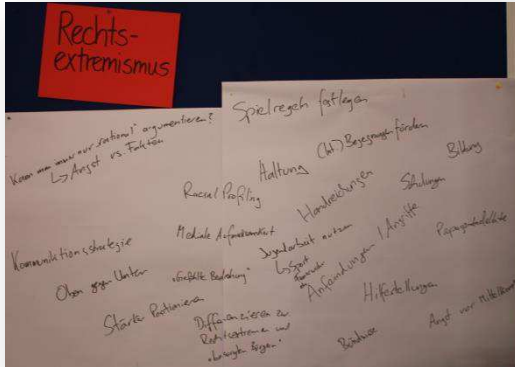 Rechts-
extremismus
Kann man immer nur "rational" argumentieren?
↳ Angst vs. Fakten
Kommunikationsstrategie
Oben gegen Unten
Stärker Positionieren
Racial Profiling
Mediale Aufmerksamkeit
"Gefühlte Bedrohung"
Differenzieren zw.
Rechtsextremen und
"besorgten Bürgern"
Spielregeln festlegen
Haltung
Begegnungen fördern
Handreichungen
Jugendarbeit nutzen
↳ Sport
Anfeindungen / Angriffe
Hilfestellungen
Bündnisse
Bildung
Schulungen
Angst vor